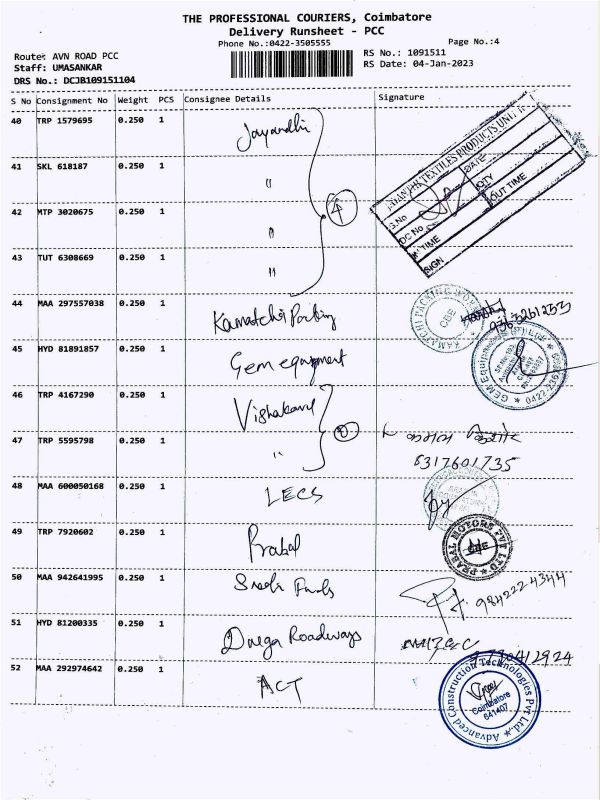 THE PROFESSIONAL COURIERS, Coimbatore
Delivery Runsheet - PCC
Phone No.:0422-3505555
Page No.:4
Route: AVN ROAD PCC
Staff: UMASANKAR
DRS No.: DCJB109151104
RS No.: 1091511
RS Date: 04-Jan-2023
S No Consignment No Weight PCS Consignee Details Signature
40 TRP 1579695 0.250 1 Jayandhi
41 SKL 618187 0.250 1 "
42 MTP 3020675 0.250 1 "
43 TUT 6308669 0.250 1 "
4
TEXTILES PRODUCTS UNIT
S.No DATE
DC No QTY
IN TIME OUT TIME
SIGN
44 MAA 297557038 0.250 1 Kamatchi Packing
KAMATCHI PACKING WORKS
CBE
45 HYD 81891857 0.250 1 Gem equipment
GEM Equipments (P) Ltd
46 TRP 4167290 0.250 1
47 TRP 5595798 0.250 1 "
6317601735
48 MAA 600050168 0.250 1 LECS
49 TRP 7920602 0.250 1 Prabal
PRABAL MOTORS PVT LTD
CBE
50 MAA 942641995 0.250 1
984222-4344
51 HYD 81200335 0.250 1 Durga Roadways
52 MAA 292974642 0.250 1 ACT
Advanced Construction Technologies Pvt Ltd.
Coimbatore
641407